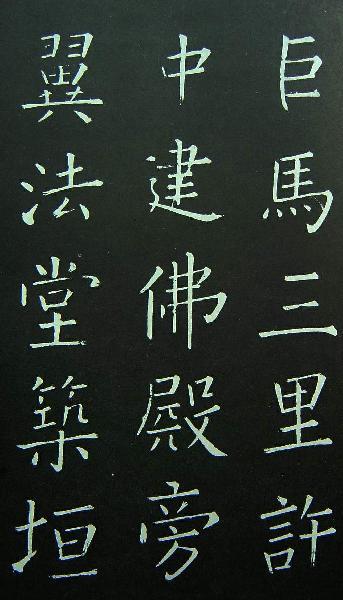 巨馬三里許
中建佛殿旁
翼法堂築垣